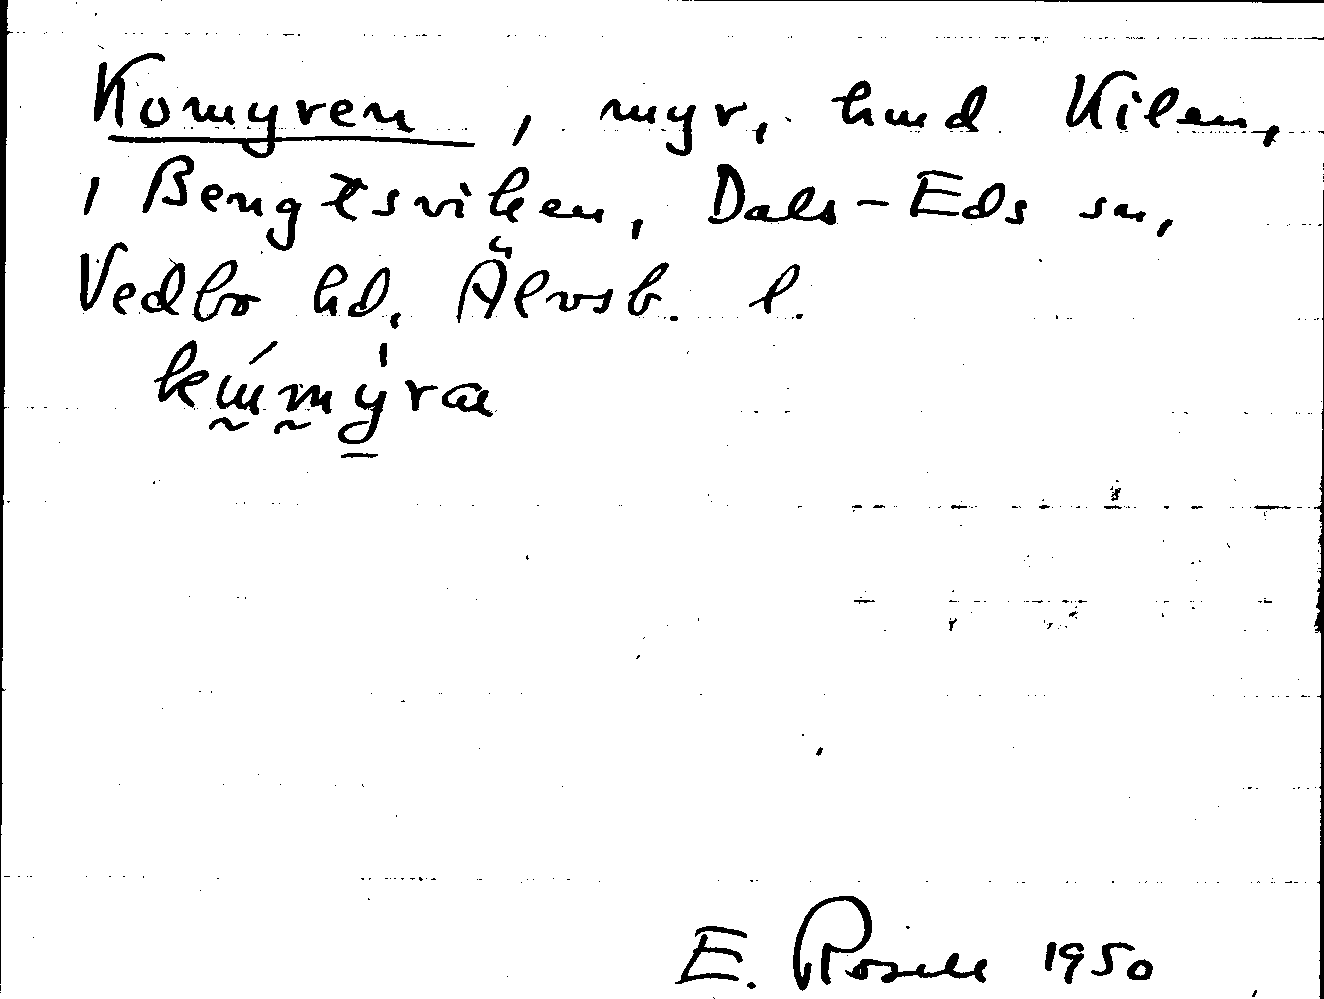 Komyren, myr, hmd Kilen,
, Bengtsviken, Dals-Eds sn,
Vedbo hd. Älvsb. l.
E. Rosell 1950